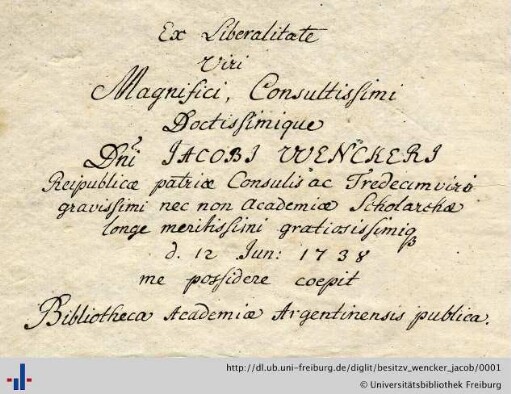 Ex Liberalitate
Viri
Magnifici, Consultissimi
Doctissimique
Dn̄i JACOBI WENCKERI
Reipublicæ patriæ Consulis ac Tredecimviri
gravissimi nec non Academiæ Scholarchæ
longe meritissimi gratiosissimiq̃
d. 12 Jun: 1738
me possidere coepit
Bibliotheca Academiæ Argentinensis publica.
http://dl.ub.uni-freiburg.de/diglit/besitzv_wencker_jacob/0001
© Universitätsbibliothek Freiburg